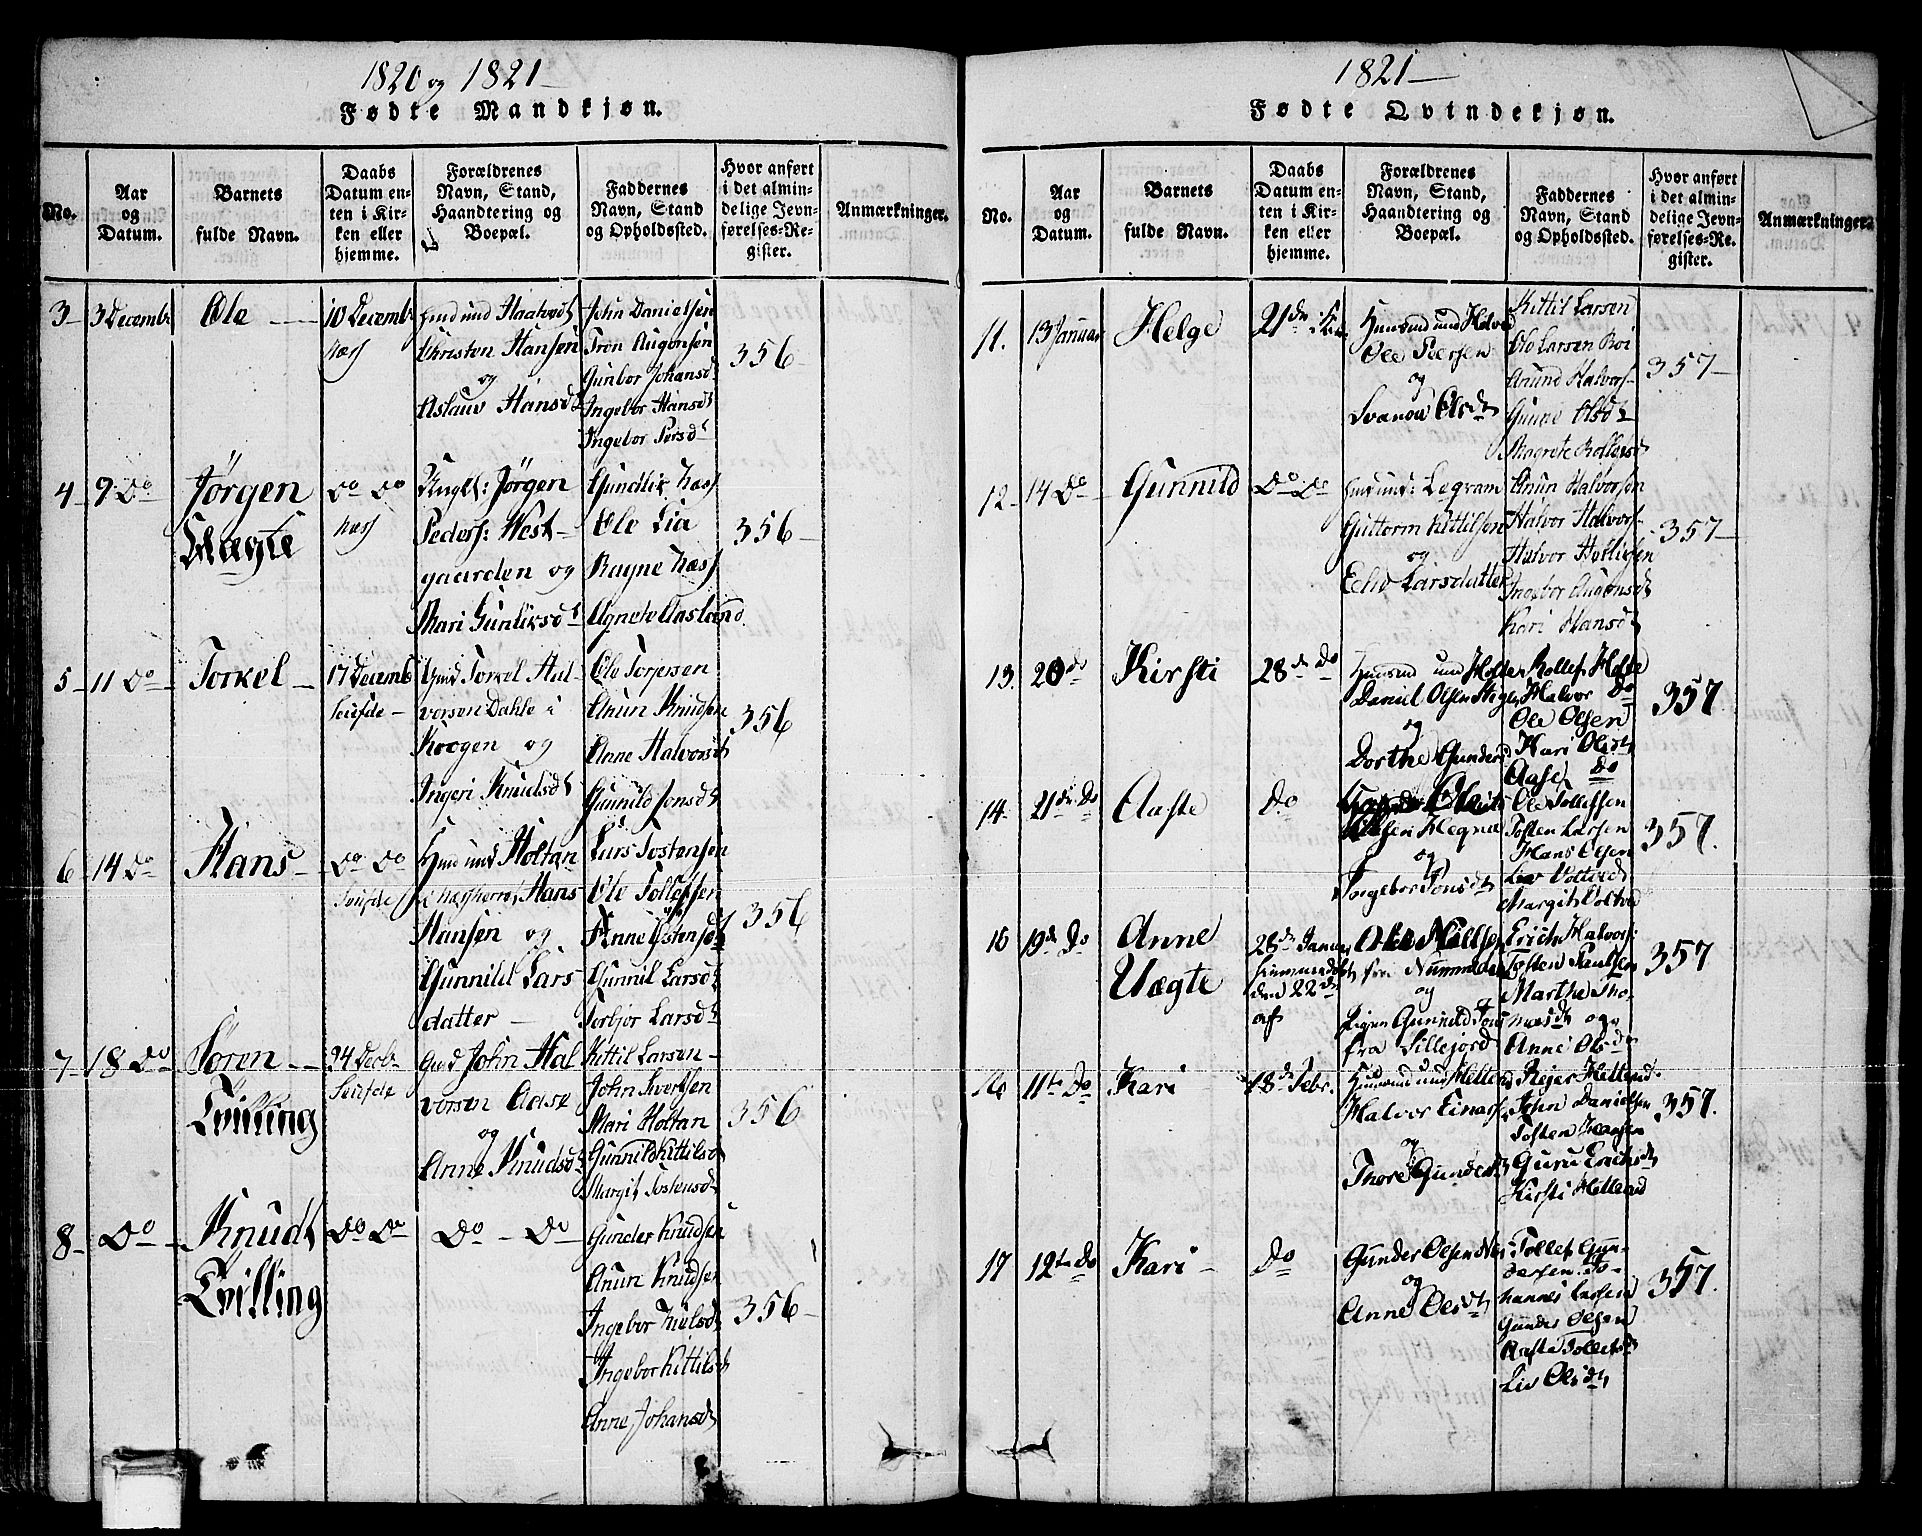 1820 og 1821
Fødte Mandkjøn.
No.
Aar og Datum.
Barnets fulde Navn.
Daabs Datum enten i Kirken eller hjemme.
Forældrenes Navn, Stand, Haandtering og Boepæl.
Faddernes Navn, Stand og Opholdssted.
Hvor anført i det almindelige Jevnførelses-Register.
Anmærkninger.
3
3 Decemb
Ole
10 Decemb
Næss
Christen Hansen
og
Aslaug Hansd
John Danielsen
Tron Augonsen
Gunbor Johansd
Ingebor Hansd
Ingebor Persd
356
4
9 Do
Jørgen
Uægte
Do Do
Næss
Ungk: Jørgen
Peders: West-
gaarden og
Mari Gunliksd
Gundlik Næss
Ole Lia
Ragne Næss
Agnete Aasland
356
5
11 Do
Torkel
17 Decemb
Torkel Hal
vorsen Dahle i
Kroogen og
Ingeri Knudsd
Ole Torjersen
Anun Knudsen
Anne Halvorsd
Gunnild Jonsd
356
6
14 Do
Hans
Do Do
Holtan
Hans
Hansen og
Gunnild Lars
datter
Lars Tostensen
Ole Tollefsen
Anne Tostensd
Gunnil Larsd
Torbjor Larsd
356
7
18 Do
Søren
Tvilling
24 Decb
John Hal
vorsen Aase
og
Anne Knudsd
Kittil Larsen
John Ivertsen
Mari Holtan
Gunnild Kittilsd
Margit Tostensd
356
8
Do
Knudt
Tvilling
Do Do
Do Do
Gunder Knudsen
Anun Knudsen
Ingebor Nielsd
Ingebor Kittilsd
Anne Johansd
356
1821
Fødte Qvindekjøn.
No.
Aar og Datum.
Barnets fulde Navn.
Daabs Datum enten i Kirken eller hjemme.
Forældrenes Navn, Stand, Haandtering og Boepæl.
Faddernes Navn, Stand og Opholdssted.
Hvor anført i det almindelige Jevnførelses-Register.
Anmærkninger.
11.
13 Januar
Helge
21de
Ole Persen
og
Svanou Olsd
Kittil Larsen
Ole Larsen Roi
Anund Halvors
Gunne Olsd
Magrete Rollefsd
357
12
14 Do
Gunnild
Do Do
Guttorm Kittilsen
og
Larsdatter
Anun Halvorsen
Halvor Halvors
Halvor
Ingebor Augonsd
Kari Hansd
357
13.
20 do
Kirsti
28 do
Daniel Olsen
og
Dorthe Gundersd
Rollef
Halvor do
Ole Olsen
Kari Olsd
Aase do
357
14.
21de Do
Aaste
Do
Olsen Hegna
og
Ingebor Tonsd
Ole Tollefsen
Tosten Larsen
Hans Olsen
Liv Voltved
Margit Voltved
357.
15
19de Do
Anne
Uægte
28de Januar
hiemmedøbt
den 22de
af
fra Nummedal
og
Pigen Gunnild
fra Sillejord
Erich Halvors:
Tosten
Marthe Tho-
masd og
Anne Olsd
357
16
11te Do
Kari
18de Febr.
Halvor Einars
og
Thore Gundersd
Rejer Hetland
John Danielsen
Tosten Hansen
Guru Erichsd
Kirsti Hetland
357.
17
12te Do
Kari
Do
Gunder Olsen
og
Anne Olsd
Tollef Gun-
dersen Jo-
hannes Larsen
Gunder Olsen
Aaste Tollefsd
Liv Olsd
357.